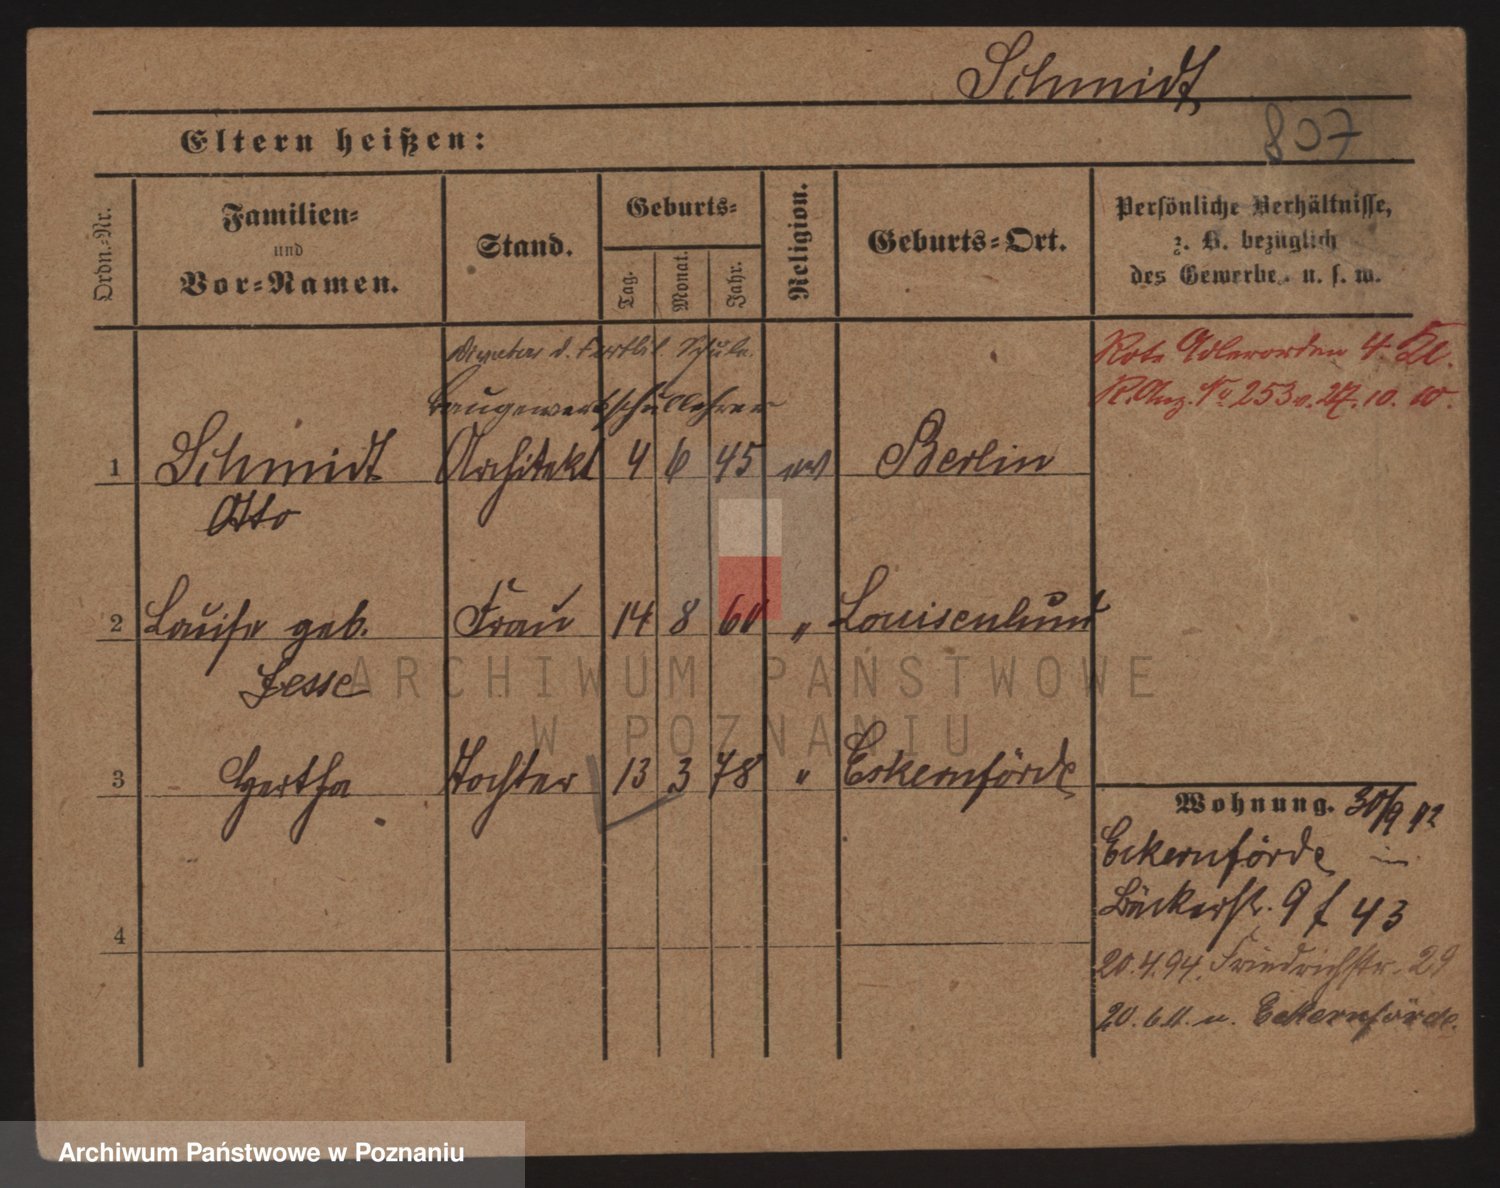 Schmidt
807
Eltern heißen:
Ordn.-Nr.
Familien- und Vor-Namen.
Stand.
Geburts-
Tag. Monat. Jahr.
Religion.
Geburts-Ort.
Persönliche Verhältnisse,
z. B. bezüglich
des Gewerbe u. s. w.
Direktor d. Fortbil. Schule.
Baugewerkschullehrer
1 Schmidt Architekt 4 6 45 ev Berlin
Otto
2 Louise geb. Frau 14 8 60 " Louisenlund
Jesse
3 Hertha Tochter 13 3 78 " Eckernförde
4
Rote Adlerorden 4. Kl.
R. Anz. No 253 v. 27. 10. 00.
Wohnung. 30/9 92
Eckernförde in
Bäckerst. 9 f 43
20.4.94. Friedrichstr. 29
20. n. Eckernförde.
ARCHIWUM PAŃSTWOWE
W POZNANIU
Archiwum Państwowe w Poznaniu